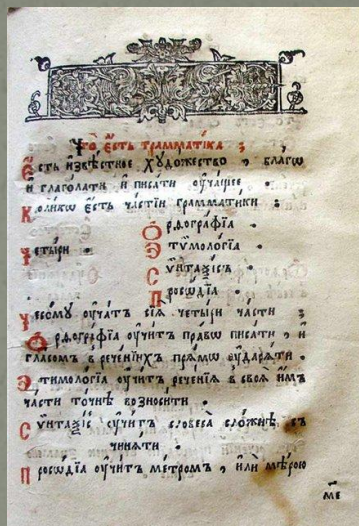 Что̀ є҆́сть грамма́тїка ;
Є҆́сть и҆звѣ́стное хꙋдо́жество , бл҃гѡ
и҆ глаго́лати и҆ писа́ти ᲂу҆ча́щее .
Коли́кѡ є҆́сть часті́й грамма́тїки ;
Ѻ҆рѳогра́фїа
Четы́ри . Э҆тѷмоло́гїа .
Сѷ́нтаѯїсъ .
Просѡ́дїа .
Чесомꙋ̀ ᲂу҆ча́тъ сїѧ̀ четы́ри ча̑сти ;
Ѻ҆рѳогра́фїа ᲂу҆чи́тъ пра́вѡ писа́ти , и҆
гла́сомъ в рече́нїихъ прѧ́мѡ ᲂу҆дарѧ́ти .
Э҆тимоло́гїа ᲂу҆чи́тъ рече́нїѧ в своѧ̑ и҆̀мъ
ча̑сти то́чнѣ возноси́ти .
Сѷ́нтаѯїс ᲂу҆чи́тъ словеса̀ сло́жнѣ съ
чинѧ́ти .
Просѡ́дїа ᲂу҆чи́тъ ме́тромъ , и҆лѝ мѣ́рою